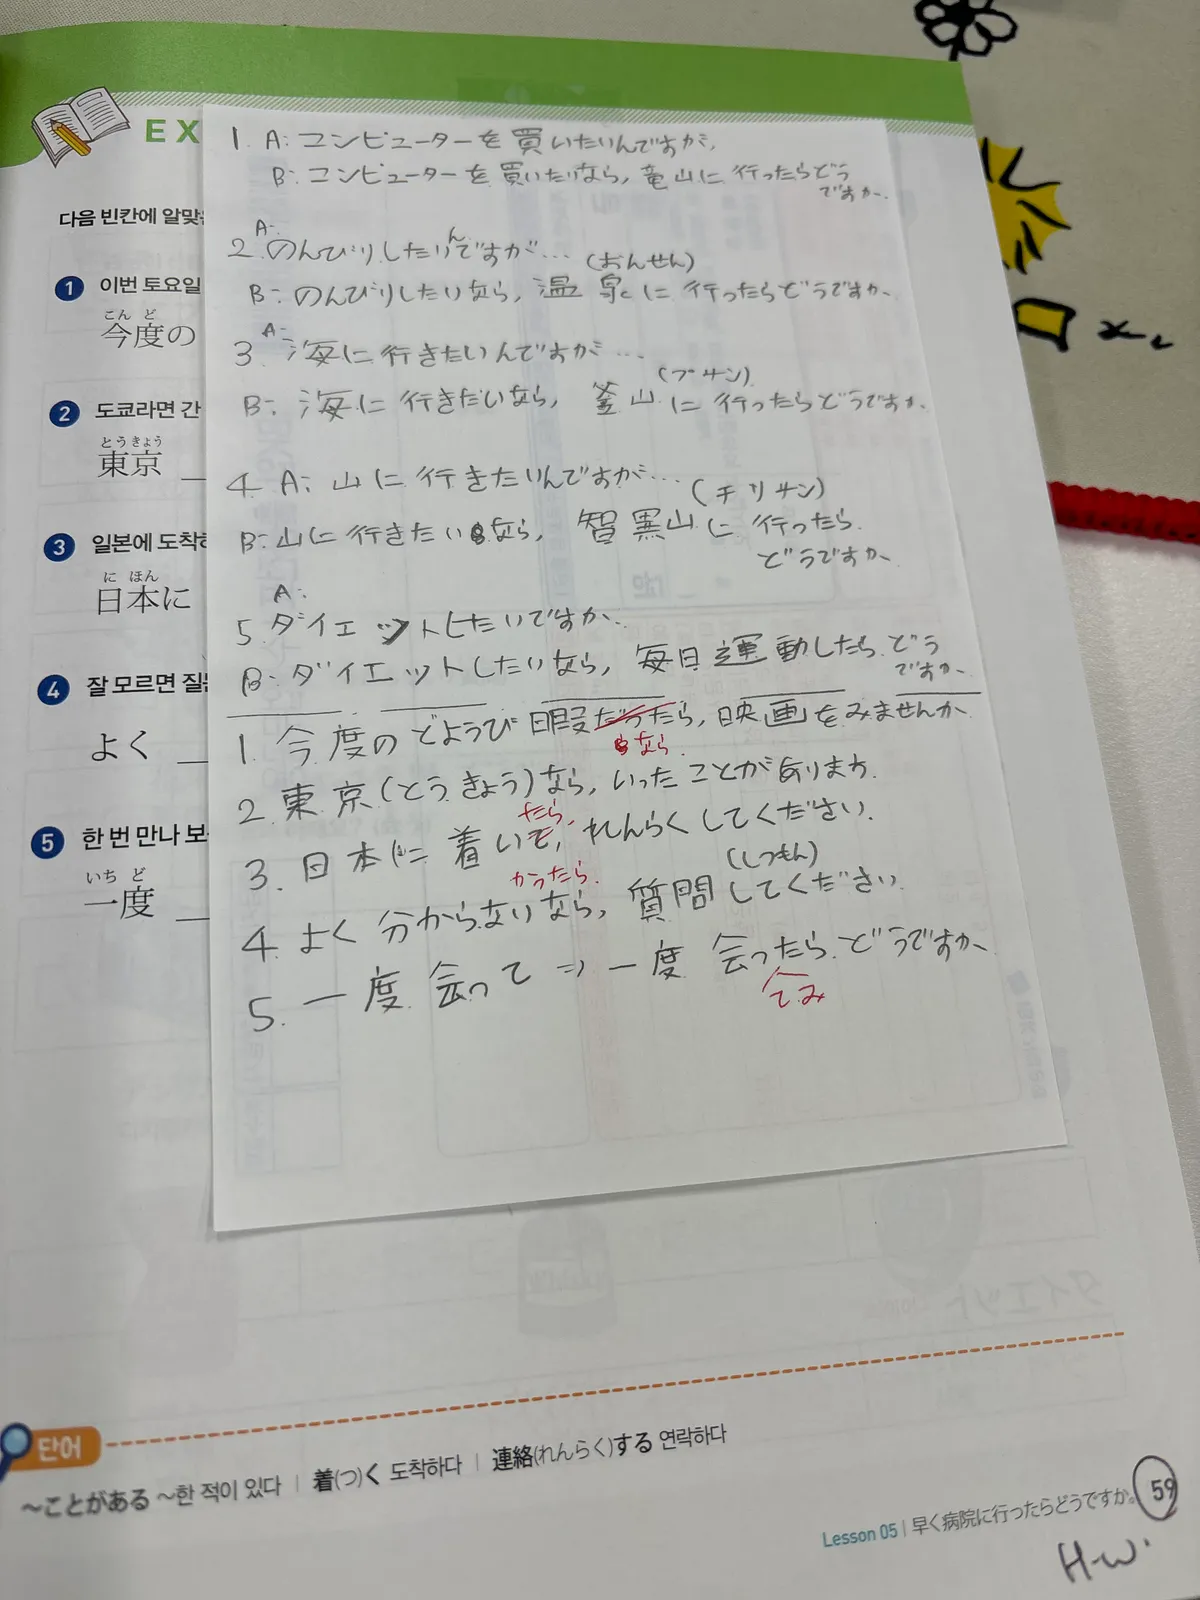 EX
다음 빈칸에 알맞은
1 이번 토요일
こん ど
今度の
2 도쿄라면 간
とうきょう
東京
3 일본에 도착하
に ほん
日本に
4 잘 모르면 질문
よく
5 한 번 만나 보
いち ど
一度
1. A: コンピューターを買いたいんですが、
B: コンピューターを買いたいなら, 竜山に行ったらどう
ですか.
A:
2. のんびりしたいんですが...
(おんせん)
B: のんびりしたいなら, 温泉に行ったらどうですか.
A:
3. 海に行きたいんですが...
(プサン)
B: 海に行きたいなら, 釜山に行ったらどうですか.
4. A: 山に行きたいんですが...
(チリサン)
B: 山に行きたいなら, 智異山に行ったら
どうですか.
A:
5. ダイエットしたいですが.
B: ダイエットしたいなら, 毎日運動したらどう
ですか.
1. 今度のどようび 暇だったら, 映画をみませんか
なら.
2. 東京(とうきょう)なら, いったことがあります.
たら,
3. 日本に着いて, れんらくしてください.
かったら. (しつもん)
4. よく分からないなら, 質問してください.
5. 一度会って ⇒ 一度会ったらどうですか.
てみ
단어
~ことがある ~한 적이 있다 | 着(つ)く 도착하다 | 連絡(れんらく)する 연락하다
Lesson 05 | 早く病院に行ったらどうですか。 59
H-W.